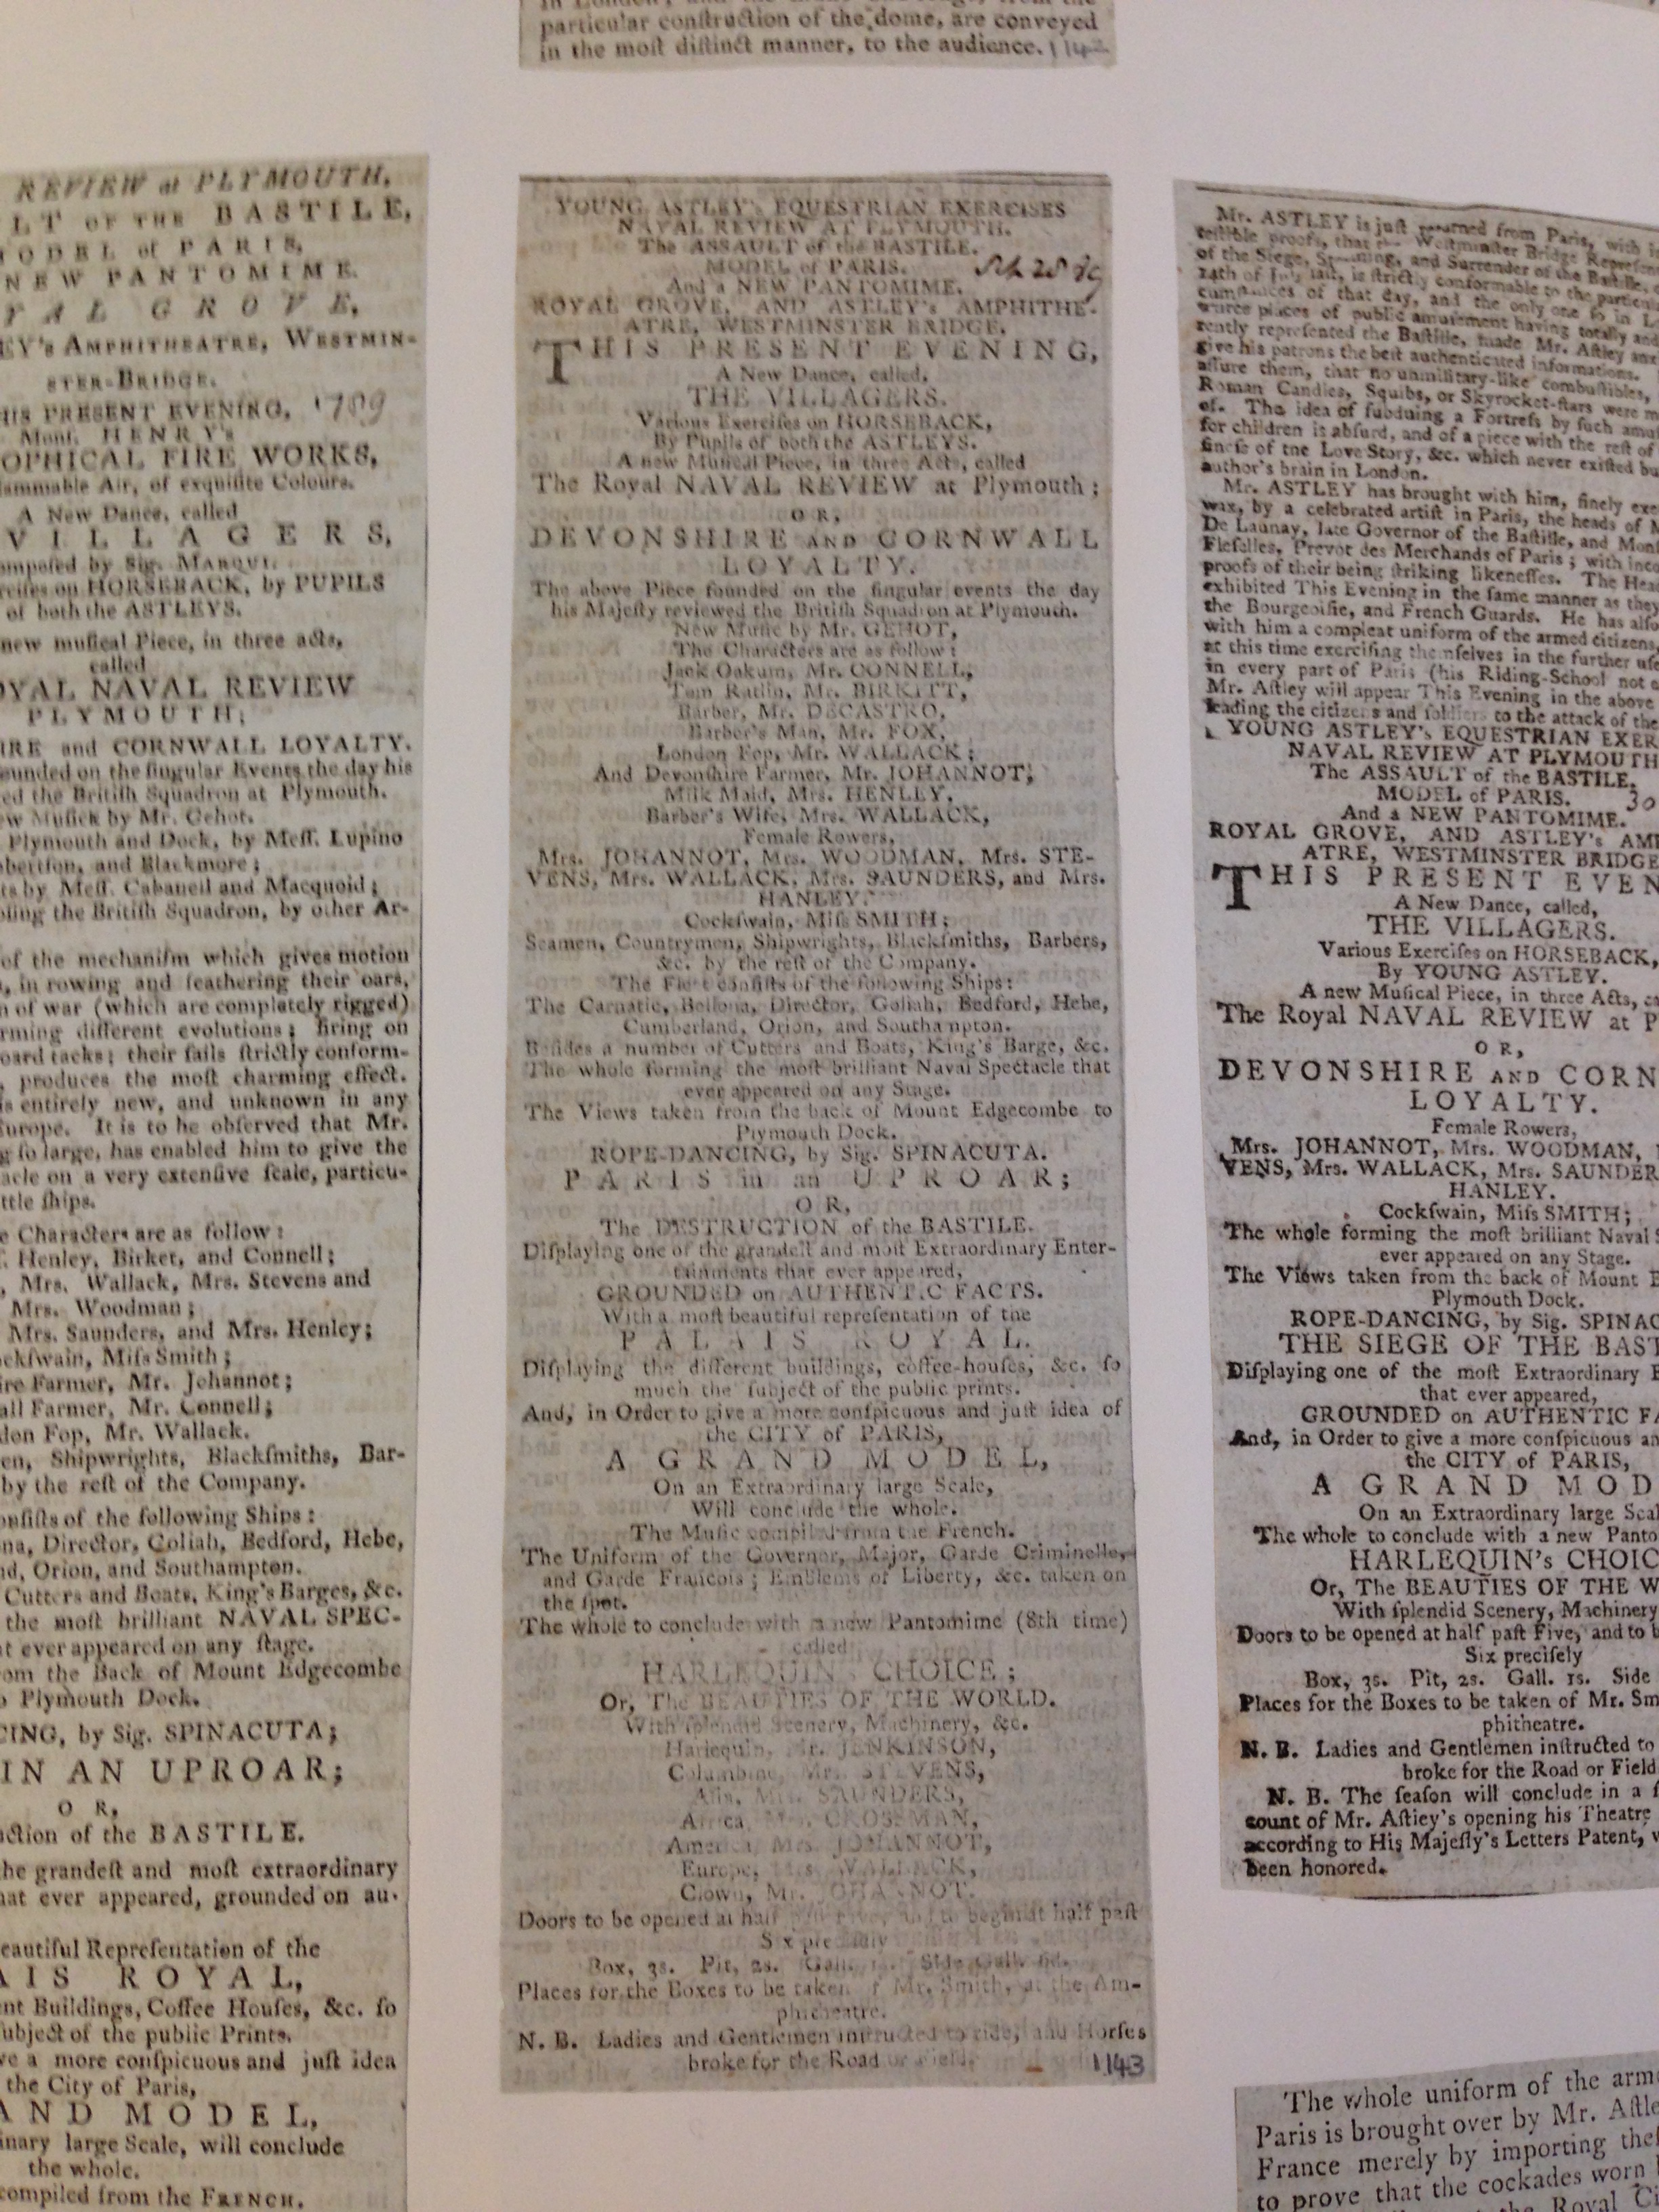 in London,
particular conſtruction of the dome, are conveyed
in the moſt diſtinct manner, to the audience. 1142
REVIEW at PLYMOUTH,
LT OF THE BASTILE,
MODEL of PARIS,
NEW PANTOMIME.
YAL GROVE,
EY's AMPHITHEATRE, WESTMIN-
STER-BRIDGE.
HIS PRESENT EVENING, 1789
Monſ. HENRY's
OPHICAL FIRE WORKS,
lammable Air, of exquiſite Colours.
A New Dance, called
VILLAGERS,
ompoſed by Sig. MARQUI.
rciſes on HORSEBACK, by PUPILS
of both the ASTLEYS.
new muſical Piece, in three acts,
called
OYAL NAVAL REVIEW
PLYMOUTH;
IRE and CORNWALL LOYALTY.
ounded on the ſingular Events the day his
ed the Britiſh Squadron at Plymouth.
ew Muſick by Mr. Gehot.
Plymouth and Dock, by Meſſ. Lupino
obertſon, and Blackmore;
ts by Meſſ. Cabaneil and Macquoid;
bling the Britiſh Squadron, by other Ar-
of the mechaniſm which gives motion
, in rowing and feathering their oars,
n of war (which are completely rigged)
rming different evolutions; firing on
oard tacks; their ſails ſtrictly conform-
, produces the moſt charming effect.
is entirely new, and unknown in any
Europe. It is to be obſerved that Mr.
g ſo large, has enabled him to give the
acle on a very extenſive ſcale, particu-
ttle ſhips.
e Characters are as follow:
. Henley, Birket, and Connell;
, Mrs. Wallack, Mrs. Stevens and
Mrs. Woodman;
Mrs. Saunders, and Mrs. Henley;
ockſwain, Miſs Smith;
ire Farmer, Mr. Johannot;
all Farmer, Mr. Connell;
don Fop, Mr. Wallack.
en, Shipwrights, Blackſmiths, Bar-
by the reſt of the Company.
onſiſts of the following Ships:
na, Director, Goliah, Bedford, Hebe,
nd, Orion, and Southampton.
Cutters and Boats, King's Barges, &c.
the moſt brilliant NAVAL SPEC-
t ever appeared on any ſtage.
om the Back of Mount Edgecombe
o Plymouth Dock.
CING, by Sig. SPINACUTA;
IN AN UPROAR;
OR,
uction of the BASTILE.
he grandeſt and moſt extraordinary
hat ever appeared, grounded on au-
eautiful Repreſentation of the
AIS ROYAL,
ent Buildings, Coffee Houſes, &c. ſo
ubject of the public Prints.
ve a more conſpicuous and juſt idea
the City of Paris,
AND MODEL,
inary large Scale, will conclude
the whole.
compiled from the FRENCH.
YOUNG ASTLEY's EQUESTRIAN EXERCISES
NAVAL REVIEW AT PLYMOUTH.
The ASSAULT of the BASTILE.
MODEL of PARIS. 28 89
And a NEW PANTOMIME.
ROYAL GROVE, AND ASTLEY's AMPHITHE-
ATRE, WESTMINSTER BRIDGE.
THIS PRESENT EVENING,
A New Dance, called,
THE VILLAGERS.
Various Exerciſes on HORSEBACK,
By Pupils of both the ASTLEYS.
A new Muſical Piece, in three Acts, called
The Royal NAVAL REVIEW at Plymouth;
OR,
DEVONSHIRE AND CORNWALL
LOYALTY.
The above Piece founded on the ſingular events the day
his Majeſty reviewed the Britiſh Squadron at Plymouth.
New Muſic by Mr. GEHOT,
The Characters are as follow:
Jack Oakum, Mr. CONNELL,
Tom Ratlin, Mr. BIRKITT,
Barber, Mr. DECASTRO,
Barber's Man, Mr. FOX,
London Fop, Mr. WALLACK;
And Devonſhire Farmer, Mr. JOHANNOT;
Milk Maid, Mrs. HENLEY,
Barber's Wife, Mrs. WALLACK,
Female Rowers,
Mrs. JOHANNOT, Mrs. WOODMAN, Mrs. STE-
VENS, Mrs. WALLACK, Mrs. SAUNDERS, and Mrs.
HANLEY.
Cockſwain, Miſs SMITH;
Seamen, Countrymen, Shipwrights, Blackſmiths, Barbers,
&c. by the reſt of the Company.
The Fleet conſiſts of the following Ships:
The Carnatic, Bellona, Director, Goliah, Bedford, Hebe,
Cumberland, Orion, and Southampton.
Beſides a number of Cutters and Boats, King's Barge, &c.
The whole forming the moſt brilliant Naval Spectacle that
ever appeared on any Stage.
The Views taken from the back of Mount Edgecombe to
Plymouth Dock.
ROPE-DANCING, by Sig. SPINACUTA.
PARIS in an UPROAR;
OR,
The DESTRUCTION of the BASTILE.
Diſplaying one of the grandeſt and moſt Extraordinary Enter-
tainments that ever appeared,
GROUNDED on AUTHENTIC FACTS.
With a moſt beautiful repreſentation of the
PALAIS ROYAL.
Diſplaying the different buildings, coffee-houſes, &c. ſo
much the ſubject of the public prints.
And, in Order to give a more conſpicuous and juſt idea of
the CITY of PARIS,
A GRAND MODEL,
On an Extraordinary large Scale,
Will conclude the whole.
The Muſic compiled from the French.
The Uniform of the Governor, Major, Garde Criminelle,
and Garde Francois; Emblems of Liberty, &c. taken on
the ſpot.
The whole to conclude with a new Pantomime (8th time)
called
HARLEQUIN's CHOICE;
Or, The BEAUTIES OF THE WORLD.
With ſplendid Scenery, Machinery, &c.
Harlequin, Mr. JENKINSON,
Columbine, Mrs. STEVENS,
Aſia, Mrs. SAUNDERS,
Africa, CROSSMAN,
America, Mrs. JOHANNOT,
Europe, Mrs. WALLACK,
Clown, Mr. JOHANNOT.
Doors to be opened at half paſt Five, and to begin at half paſt
Six preciſely
Box, 3s. Pit, 2s. Gall. 1s. Side Gall. 6d.
Places for the Boxes to be taken of Mr. Smith, at the Am-
phitheatre.
N. B. Ladies and Gentlemen inſtructed to ride, and Horſes
broke for the Road or Field.
1143
Mr. ASTLEY is juſt returned from Paris, with
teſtible proofs, that the Weſtminſter Bridge
of the Siege, Storming, and Surrender of the Baſtille,
14th of July laſt, is ſtrictly conformable to the
cumſtances of that day, and the only one ſo in
places of public amuſement having totally and
rently repreſented the Baſtille, made Mr. Aſtley
give his patrons the beſt authenticated informations.
aſſure them, that no unmilitary-like combuſtibles,
Roman Candies, Squibs, or Skyrocket-ſtars were
of. The idea of ſubduing a Fortreſs by ſuch
for children is abſurd, and of a piece with the reſt of
fineſs of the Love Story, &c. which never exiſted
author's brain in London.
Mr. ASTLEY has brought with him, finely
wax, by a celebrated artiſt in Paris, the heads of
De Launay, late Governor of the Baſtille, and
Fleſelles, Prevot des Merchands of Paris; with
proofs of their being ſtriking likeneſſes. The
exhibited This Evening in the ſame manner as they
the Bourgeoiſie, and French Guards. He has alſo
with him a compleat uniform of the armed citizens,
at this time exerciſing themſelves in the further
in every part of Paris (his Riding-School not
Mr. Aſtley will appear This Evening in the above
leading the citizens and ſoldiers to the attack of the
YOUNG ASTLEY's EQUESTRIAN EXER
NAVAL REVIEW AT PLYMOUTH
The ASSAULT of the BASTILE.
MODEL of PARIS. 30
And a NEW PANTOMIME.
ROYAL GROVE, AND ASTLEY's AM
ATRE, WESTMINSTER BRIDGE
THIS PRESENT EVEN
A New Dance, called,
THE VILLAGERS.
Various Exerciſes on HORSEBACK,
By YOUNG ASTLEY.
A new Muſical Piece, in three Acts,
The Royal NAVAL REVIEW at P
OR,
DEVONSHIRE AND CORN
LOYALTY.
Female Rowers,
Mrs. JOHANNOT, Mrs. WOODMAN,
VENS, Mrs. WALLACK, Mrs. SAUNDER
HANLEY.
Cockſwain, Miſs SMITH;
The whole forming the moſt brilliant Naval
ever appeared on any Stage.
The Views taken from the back of Mount
Plymouth Dock.
ROPE-DANCING, by Sig. SPINAC
THE SIEGE OF THE BAST
Diſplaying one of the moſt Extraordinary
that ever appeared,
GROUNDED on AUTHENTIC FA
And, in Order to give a more conſpicuous
the CITY of PARIS,
A GRAND MOD
On an Extraordinary large Scal
The whole to conclude with a new Panto
HARLEQUIN's CHOIC
Or, The BEAUTIES OF THE W
With ſplendid Scenery, Machinery
Doors to be opened at half paſt Five, and to b
Six preciſely
Box, 3s. Pit, 2s. Gall. 1s. Side
Places for the Boxes to be taken of Mr. Sm
phitheatre.
N. B. Ladies and Gentlemen inſtructed to
broke for the Road or Field
N. B. The ſeaſon will conclude in a
count of Mr. Aſtley's opening his Theatre
according to His Majeſty's Letters Patent,
been honored.
The whole uniform of the arm
Paris is brought over by Mr. Aſtle
France merely by importing theſ
to prove that the cockades worn
the Royal Ci